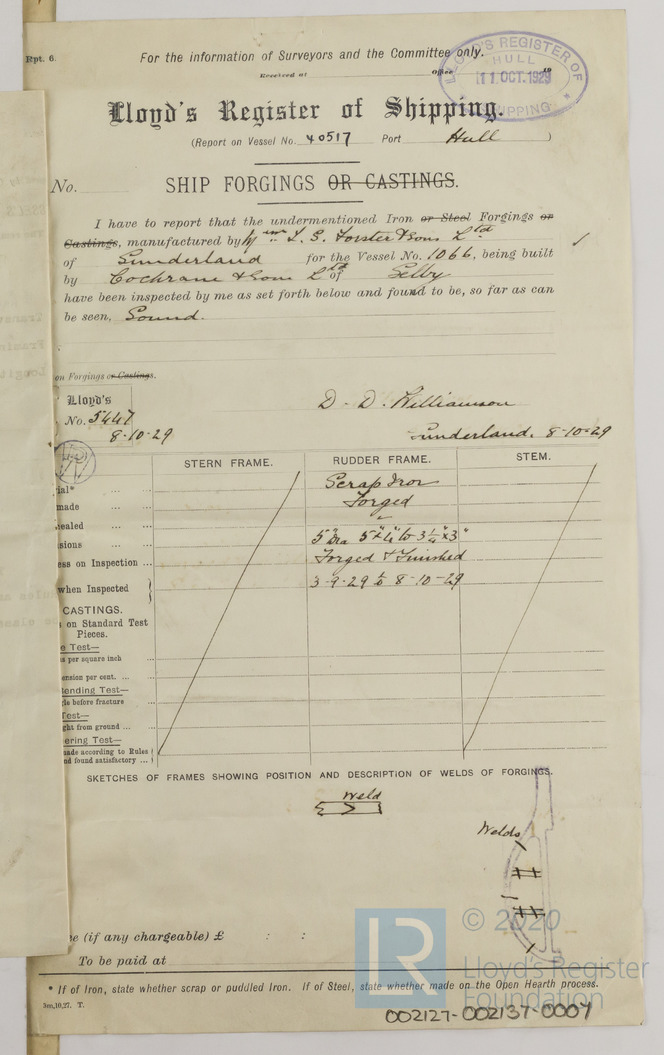 Rpt. 6.
For the information of Surveyors and the Committee only.
Received at Office 19
LLOYD'S REGISTER OF SHIPPING
HULL
11 OCT. 1929
Lloyd's Register of Shipping.
(Report on Vessel No. 40517 Port Hull )
No.
SHIP FORGINGS OR CASTINGS.
I have to report that the undermentioned Iron or Steel Forgings or
Castings, manufactured by L. S. Forster & Sons Ltd
of Sunderland for the Vessel No. 1066, being built
by Cochrane & Sons Ltd of Selby
have been inspected by me as set forth below and found to be, so far as can
be seen, Sound.
on Forgings or Castings.
Lloyd's
No. 5447
8-10-29
D. D. Williamson
Sunderland. 8-10-29
STERN FRAME. RUDDER FRAME. STEM.
ial* ... ... Scrap Iron
made ... ... Forged
ealed ... ...
sions ... ... 5" Dia 5"x4" to 3 1/4" x 3"
ess on Inspection ... Forged & Finished
when Inspected 3-9-29 to 8-10-29
CASTINGS.
on Standard Test
Pieces.
e Test—
s per square inch ...
ension per cent. ... ...
ending Test—
gle before fracture ...
Test—
ght from ground ... ...
ering Test—
made according to Rules
nd found satisfactory ...
SKETCHES OF FRAMES SHOWING POSITION AND DESCRIPTION OF WELDS OF FORGINGS.
Weld
Welds
e (if any chargeable) £ : :
To be paid at
* If of Iron, state whether scrap or puddled Iron. If of Steel, state whether made on the Open Hearth process.
3m,10,27. T.
LR
© 2020
Lloyd's Register
Foundation
002127-002137-0007